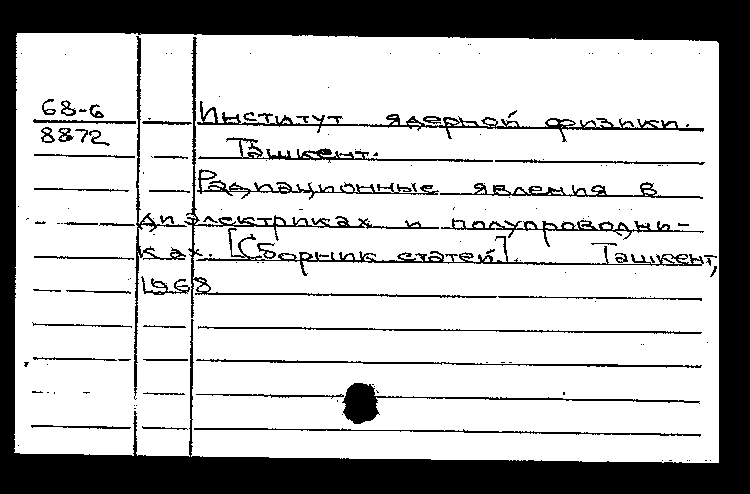 68-6
8872
Институт ядерной физики.
Ташкент.
Радиационные явления в
диэлектриках и полупроводни-
ках. [Сборник статей]. Ташкент,
1968